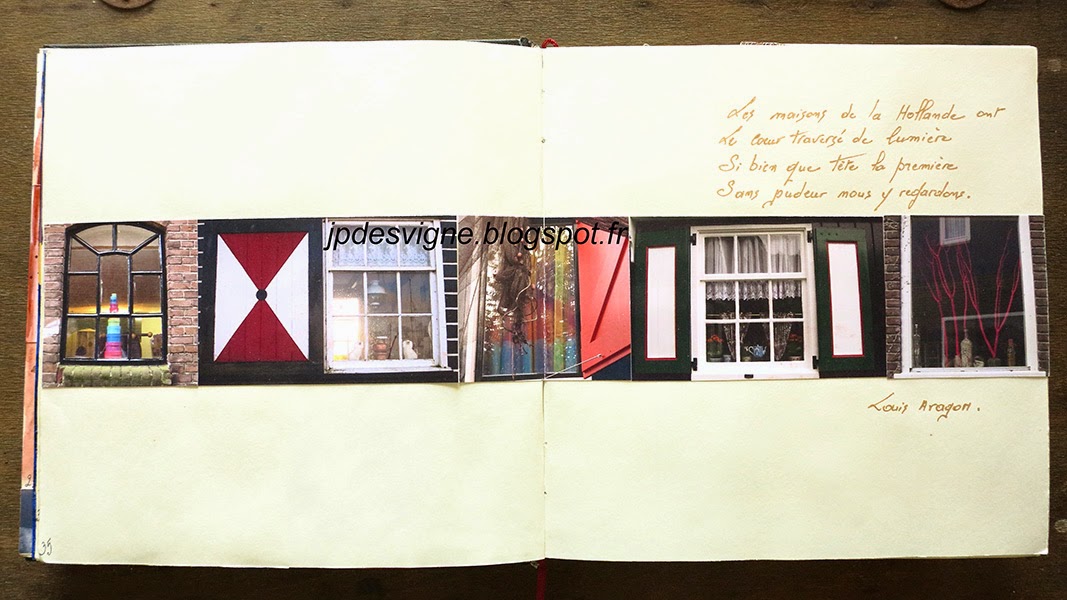 Les maisons de la Hollande ont
Le cœur traversé de lumière
Si bien que tête la première
Sans pudeur nous y regardons.
jpdesvigne.blogspot.fr
Louis Aragon.
35